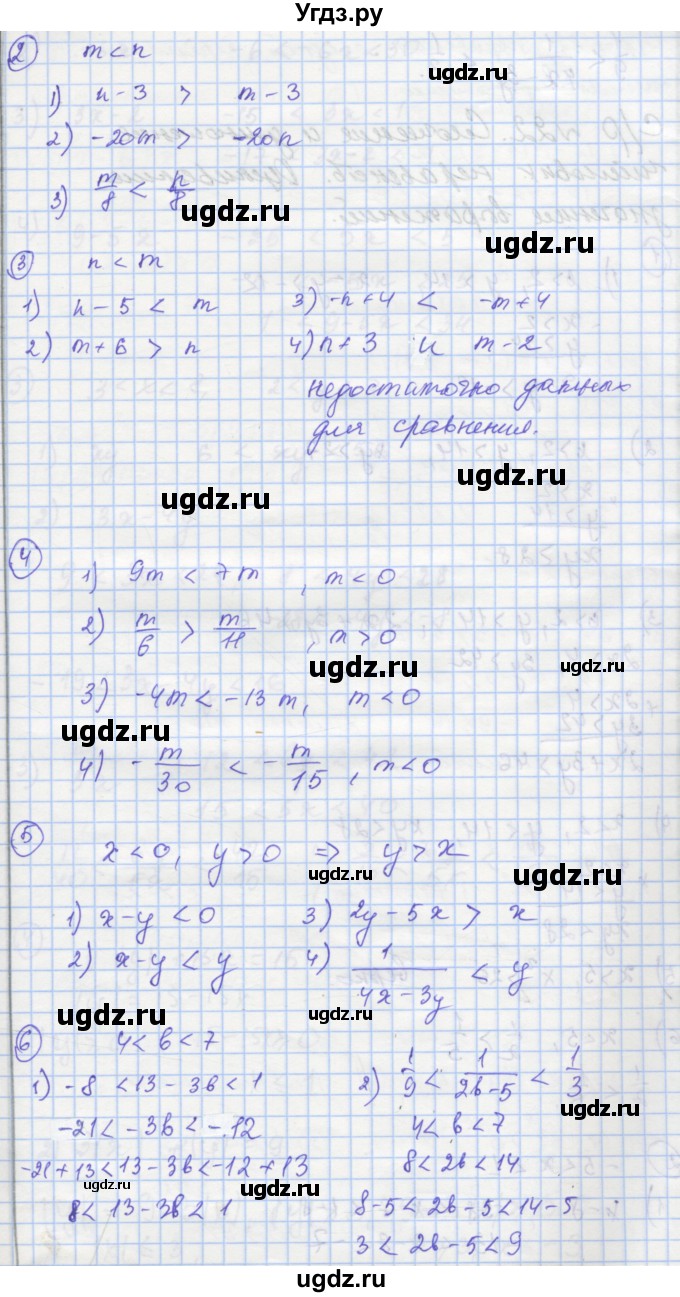 Угдз.ру
2 m < n
1) n - 3 > m - 3
ugdz.ru
2) -20m > -20n
3) m/8 < n/8
ugdz.ru
ugdz.ru
3 n < m
1) n - 5 < m 3) -n + 4 < -m + 4
2) m + 6 > n 4) n + 3 и m - 2
недостаточно данных
для сравнения.
ugdz.ru
ugdz.ru
4
1) 9m < 7m , m < 0
2) m/6 > m/11 , m > 0
ugdz.ru ugdz.ru
3) -4m < -13m, m < 0
ugdz.ru
4) -m/30 < -m/15 , m < 0
5
x < 0, y > 0 ⇒ y > x
ugdz.ru ugdz.ru
1) x - y < 0 3) 2y - 5x > x
2) x - y < y 4) 1/(4x - 3y) < y
ugdz.ru ugdz.ru
6 4 < b < 7
1) -8 < 13 - 3b < 1 2) 1/9 < 1/(2b - 5) < 1/3
-21 < -3b < -12 4 < b < 7
-21 + 13 < 13 - 3b < -12 + 13 8 < 2b < 14
ugdz.ru ugdz.ru
8 < 13 - 3b < 1 8 - 5 < 2b - 5 < 14 - 5
3 < 2b - 5 < 9
ugdz.ru